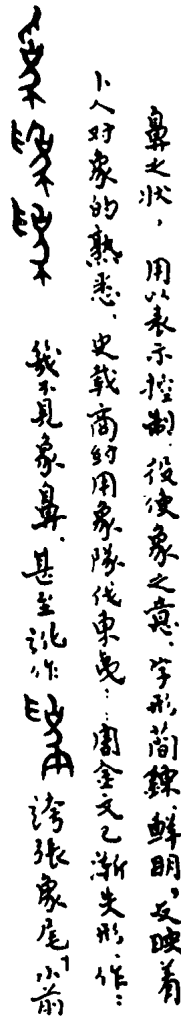 鼻之状，用以表示控制、役使象之意。字形简鍊、鲜明，反映着
卜人对象的熟悉。史载商纣用象队伐東夷；周金文已漸失形，作：
幾不見象鼻，甚至訛作誇張象尾，小前